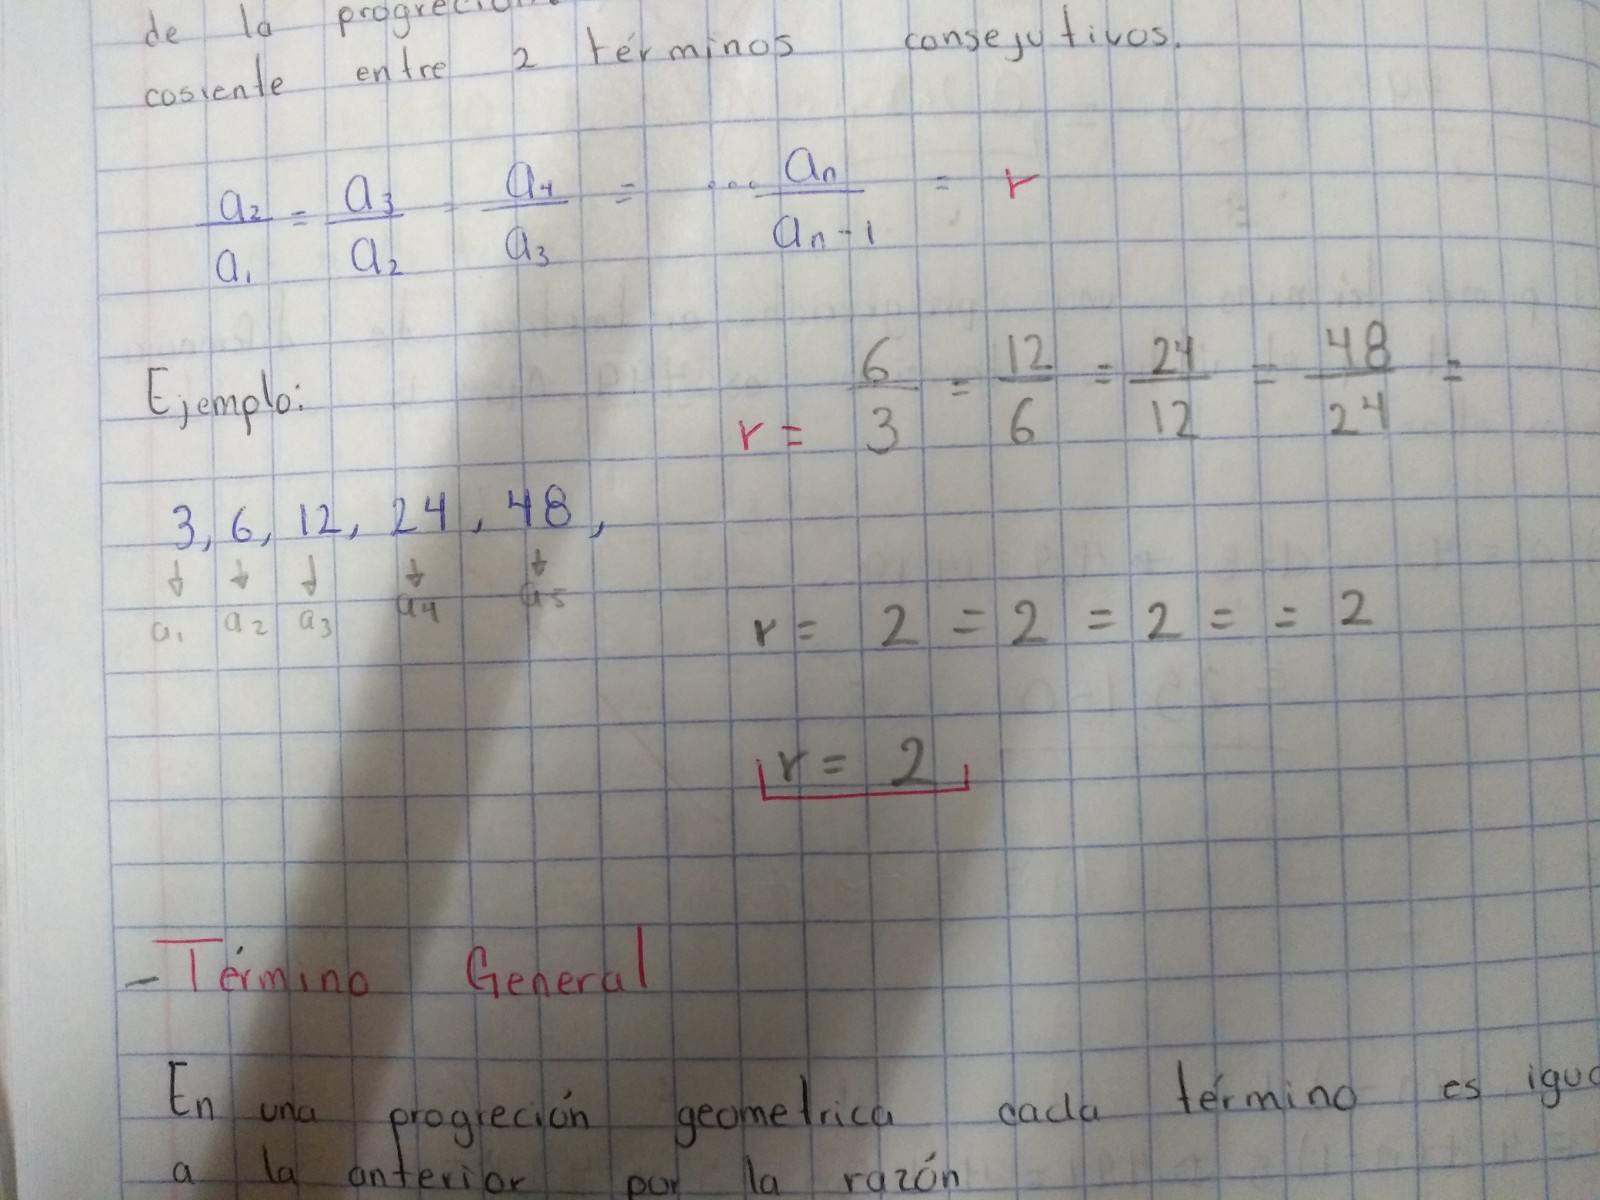 de la progreción
cosiente entre 2 términos consejutivos.
a2/a1 = a3/a2 = a4/a3 = ... an/an-1 = r
Ejemplo:
r = 6/3 = 12/6 = 24/12 = 48/24 =
3, 6, 12, 24, 48,
a1 a2 a3 a4 a5
r = 2 = 2 = 2 = = 2
r = 2
- Término General
En una progreción geometrica cada término es igua
a la anterior por la razón